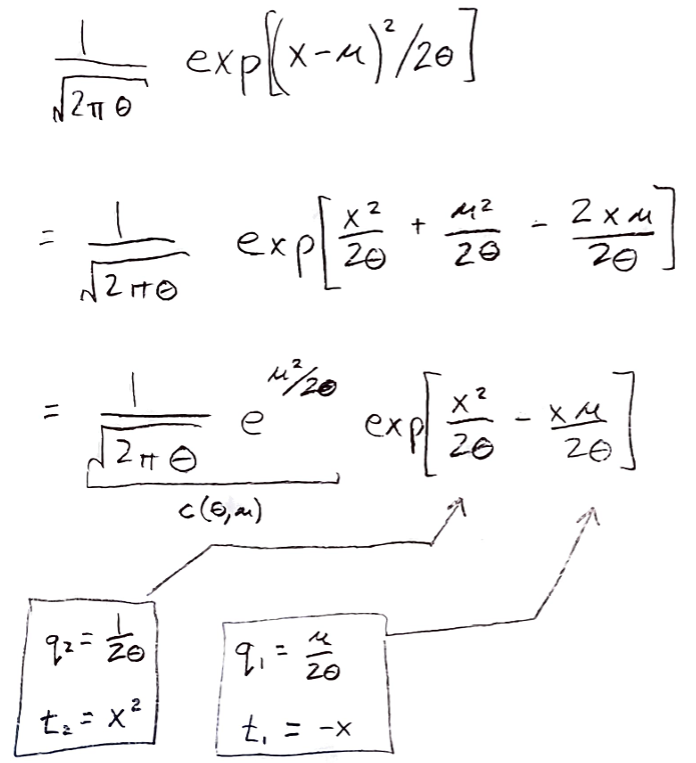 1/√(2πθ) exp[(x-μ)²/2θ]
= 1/√(2πθ) exp[x²/2θ + μ²/2θ - 2xμ/2θ]
= 1/√(2πθ) e^(μ²/2θ) exp[x²/2θ - xμ/2θ]
c(θ,μ)
q₂ = 1/2θ
t₂ = x²
q₁ = μ/2θ
t₁ = -x